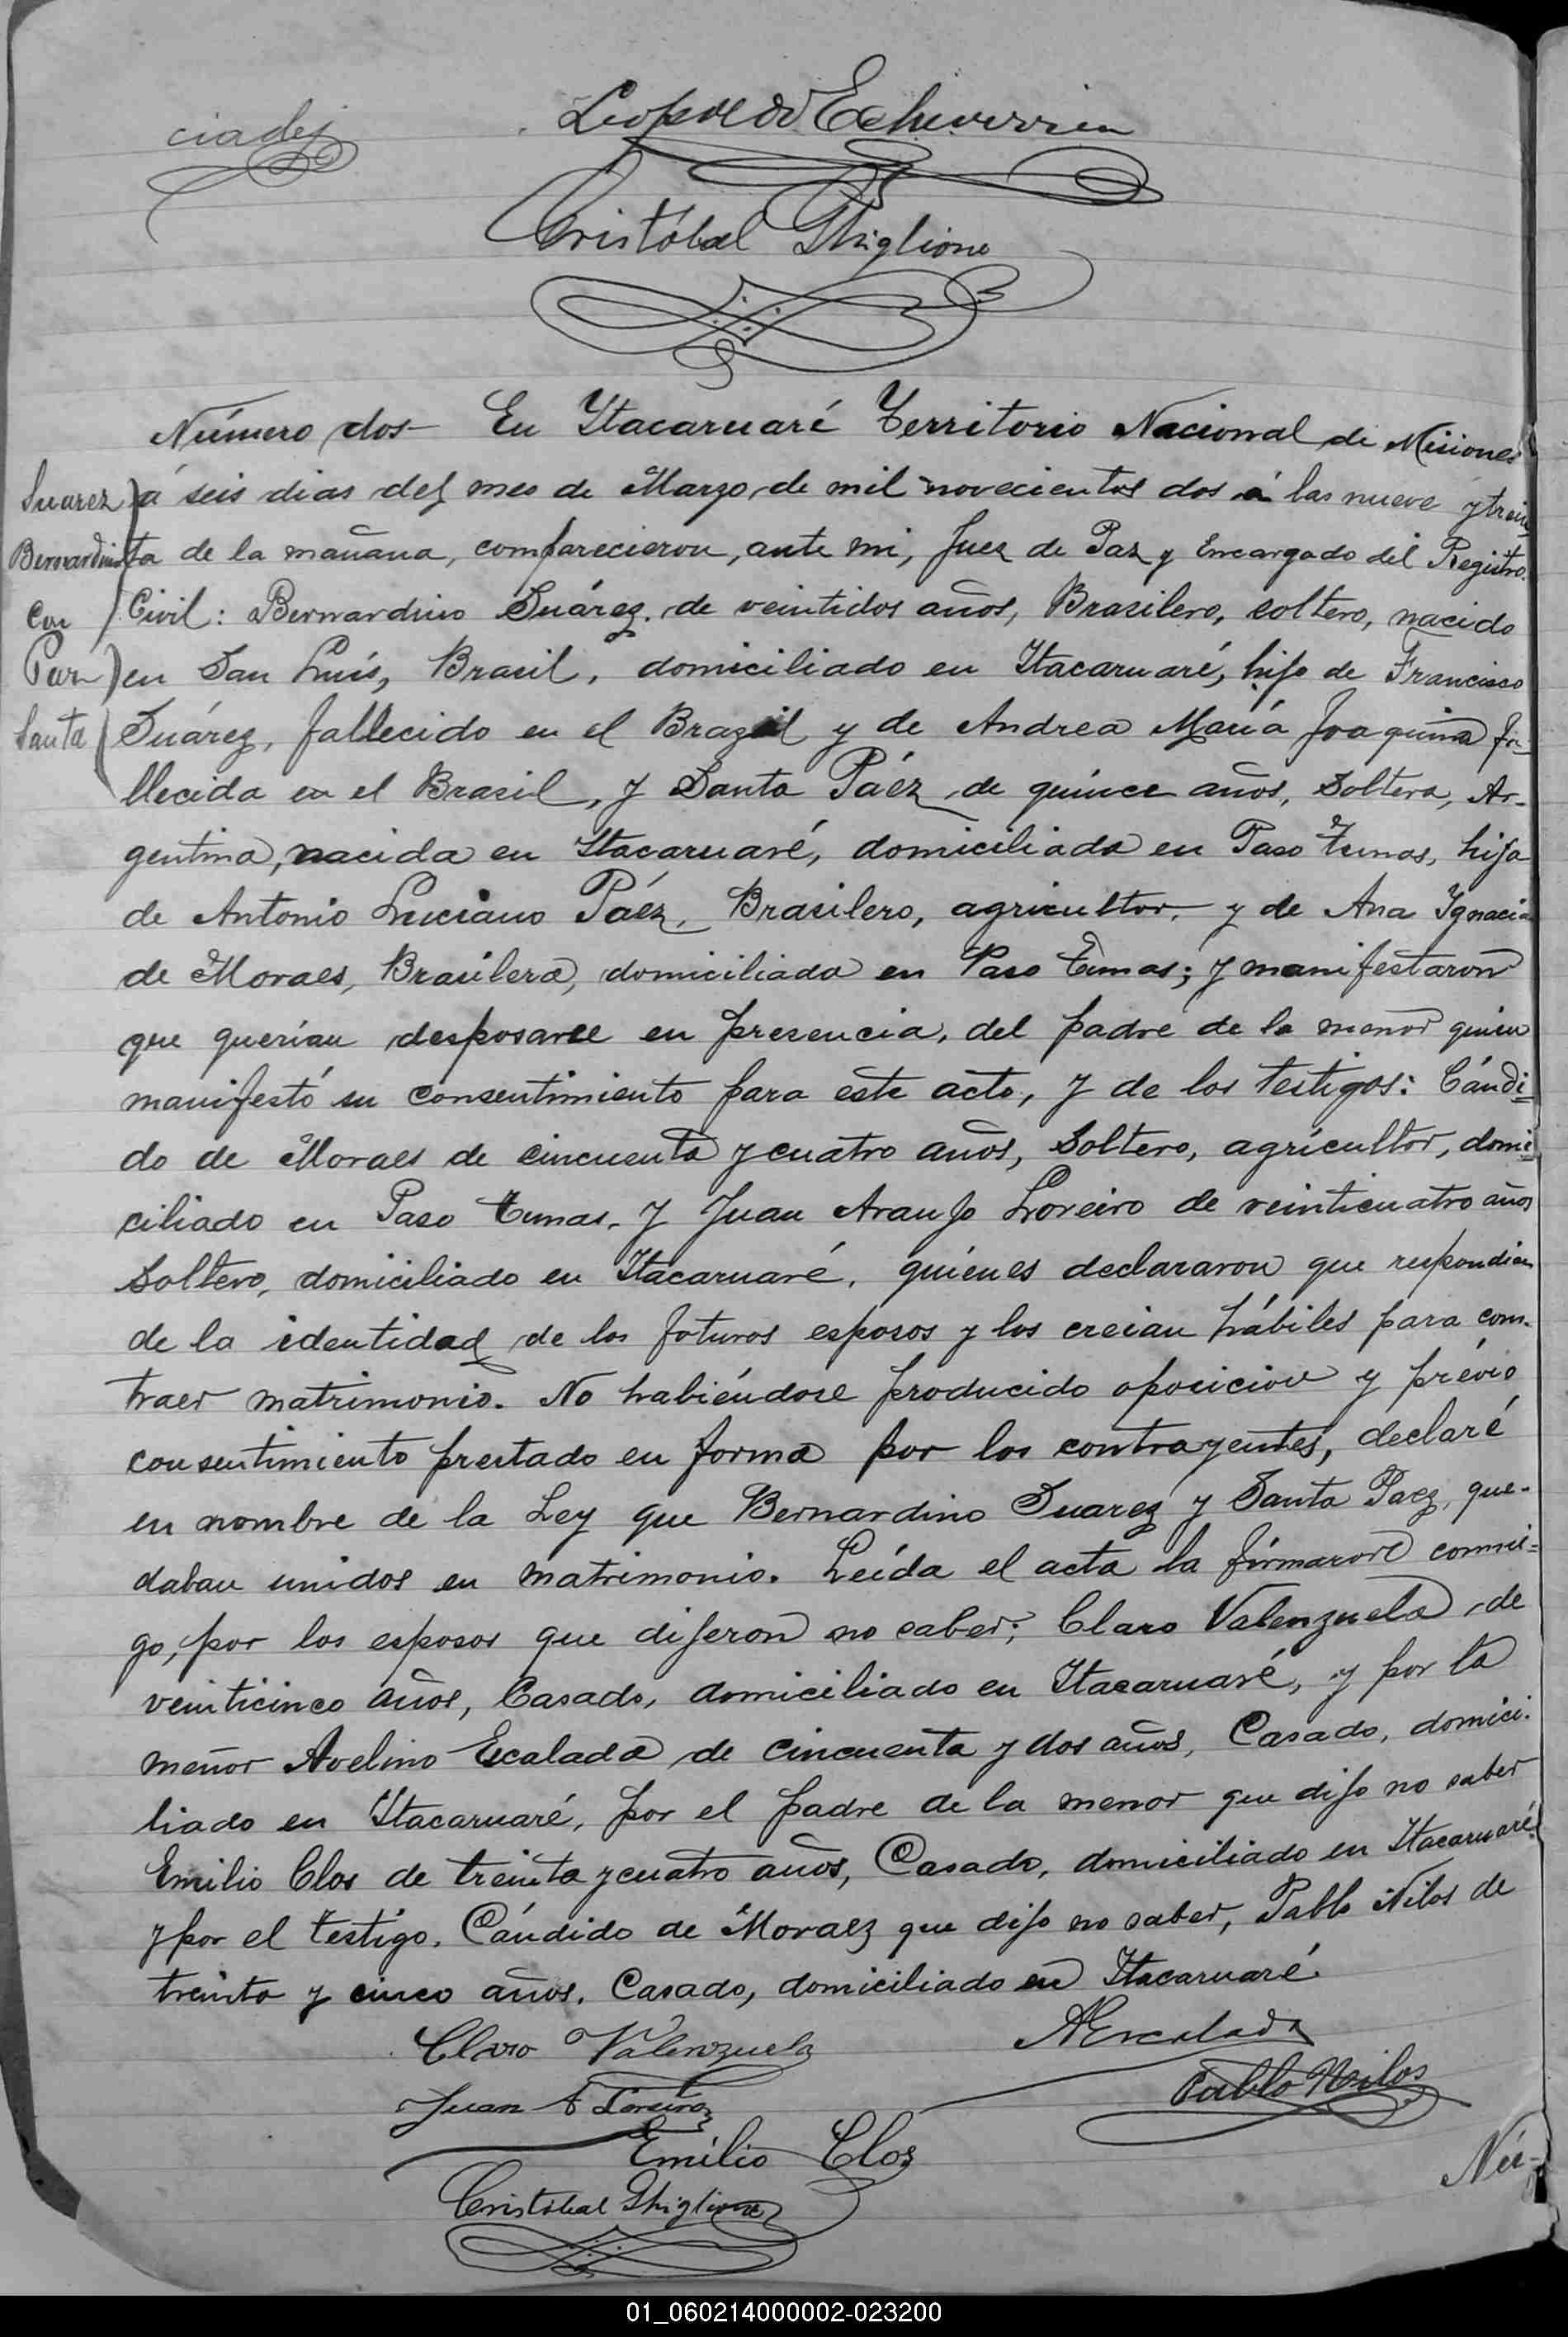 Leopoldo Echeverria
Cristóbal Ghiglione
Número dos— En Ytacaruaré Territorio Nacional de Misiones
Suarez
á seis dias del mes de Marzo de mil novecientos dos á las nueve y trein
Bernardino
ta de la mañana, comparecieron, ante mi, Juez de Paz y Encargado del Registro
con
Civil: Bernardino Suárez, de veintidos años, Brasilero, soltero, nacido
en San Luís, Brasil, domiciliado en Ytacaruaré, hijo de Francisco
Santa
Suárez, fallecido en el Brazil y de Andrea María Joaquina fa-
llecida en el Brasil, y Santa Páez de quince años, soltera, Ar-
gentina, nacida en Ytacaruaré, domiciliada en Paso Tunas, hija
de Antonio Luciano Páez, Brasilero, agricultor, y de Ana Ygnacia
de Moraes, Brasilera, domiciliada en Paso Tunas; y manifestaron
que querian desposarse en presencia, del padre de la menor quien
manifestó su consentimiento para este acto, y de los testigos: Cándi=
do de Moraes de cincuenta y cuatro años, soltero, agricultor, domi=
ciliado en Paso Tunas, y Juan Araujo Loreiro de veinticuatro años
soltero, domiciliado en Ytacaruaré, quiénes declararon que respondian
de la identidad de los foturos esposos y los creian hábiles para con-
traer matrimonio. No habiéndose producido oposicion y prévio
consentimiento prestado en forma por los contrayentes, declaré
en nombre de la Ley que Bernardino Suarez y Santa Paez, que-
daban unidos en matrimonio. Leída el acta la firmaron conmi=
go, por los esposos que dijeron no saber; Claro Valenzuela, de
veinticinco años, Casado, domiciliado en Ytacaruaré, y por la
menor Avelino Escalada de cincuenta y dos años, Casado, domici-
liado en Ytacaruaré, por el padre de la menor que dijo no saber
Emilio Clos de treinta y cuatro años, Casado, domiciliado en Ytacaruaré
y por el testigo, Cándido de Moraez que dijo no saber, Pablo Nilos de
treinta y cinco años, Casado, domiciliado en Ytacaruaré.
Claro Valenzuela
AEscalada
Juan A Loreiro
Pablo Nilos
Emilio Clos
Cristóbal Ghiglione
Nú-
01_060214000002-023200